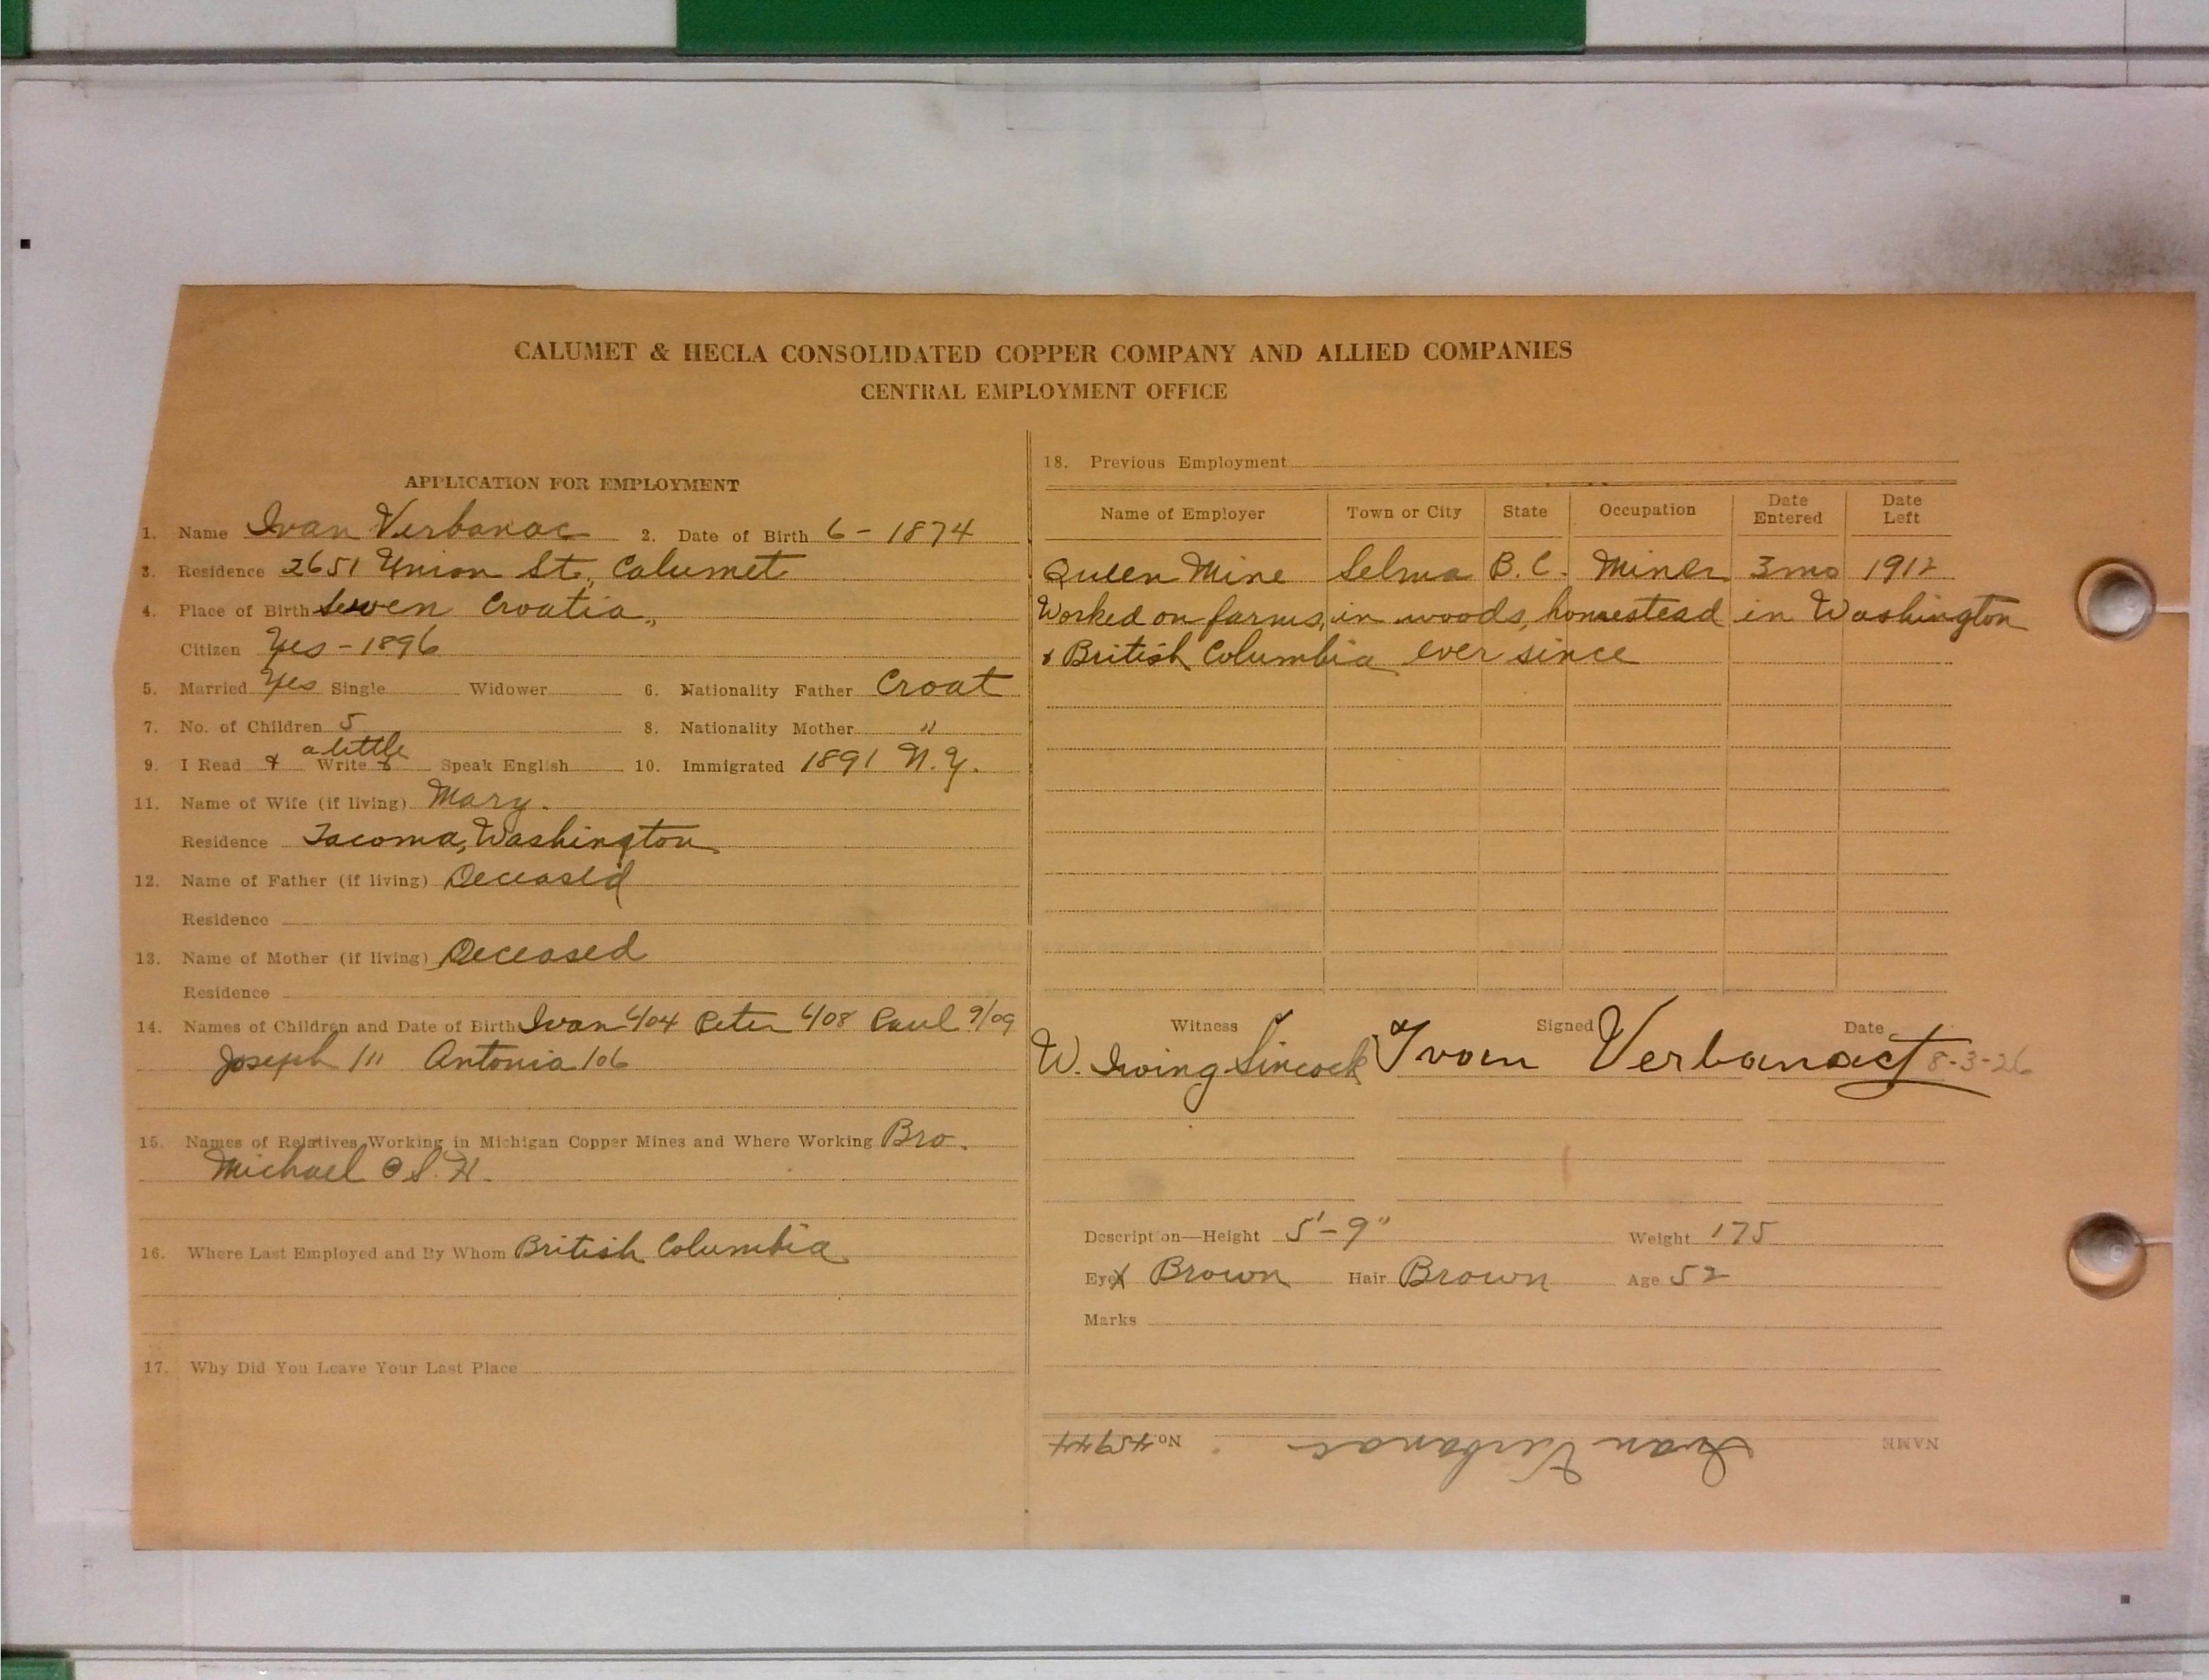 CALUMET & HECLA CONSOLIDATED COPPER COMPANY AND ALLIED COMPANIES
CENTRAL EMPLOYMENT OFFICE
APPLICATION FOR EMPLOYMENT
1. Name Ivan Verbanac 2. Date of Birth 6 - 1874
3. Residence 2651 Union St., Calumet
4. Place of Birth Croatia,
Citizen Yes - 1896
5. Married Yes Single Widower 6. Nationality Father Croat
7. No. of Children 5 8. Nationality Mother "
a little
9. I Read & Write & Speak English 10. Immigrated 1891 N.Y.
11. Name of Wife (if living) Mary.
Residence Tacoma, Washington
12. Name of Father (if living) Deceased
Residence
13. Name of Mother (if living) Deceased
Residence
14. Names of Children and Date of Birth Ivan 6/04 Peter 6/08 Paul 9/09
Joseph /11 Antonia /06
15. Names of Relatives Working in Michigan Copper Mines and Where Working Bro.
Michael @ S.H.
16. Where Last Employed and By Whom British Columbia
17. Why Did You Leave Your Last Place
18. Previous Employment
Name of Employer Town or City State Occupation Date Entered Date Left
Queen Mine Selma B.C. Miner 3mo 1912
Worked on farms, in woods, homestead in Washington
& British Columbia ever since
Witness Signed Date
W. Irving Sincock Ivan Verbanact 8-3-26
Description—Height 5'-9" Weight 175
Eyes Brown Hair Brown Age 52
Marks
NAME Ivan Verbanac No. 45944